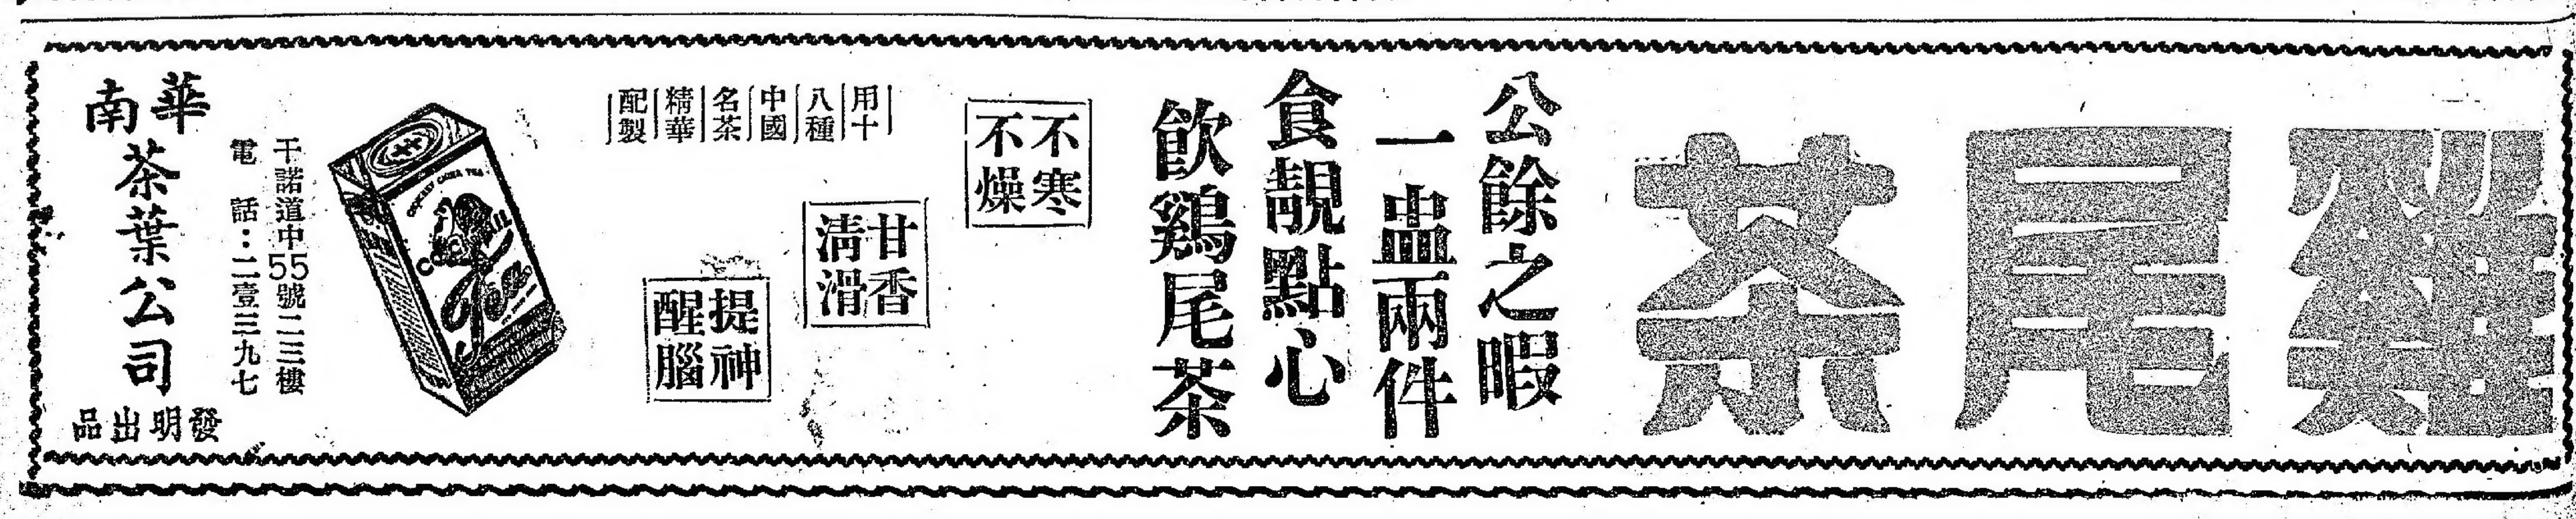 雞尾茶
公餘之暇
一盅兩件
食靚點心
飲鷄尾茶
不寒
不燥
甘香
清滑
提神
醒腦
用十
八種
中國
名茶
精華
配製
COCKTAIL
Tea
干諾道中55號二三樓
電話：二壹三九七
華南
茶葉公司
發明出品